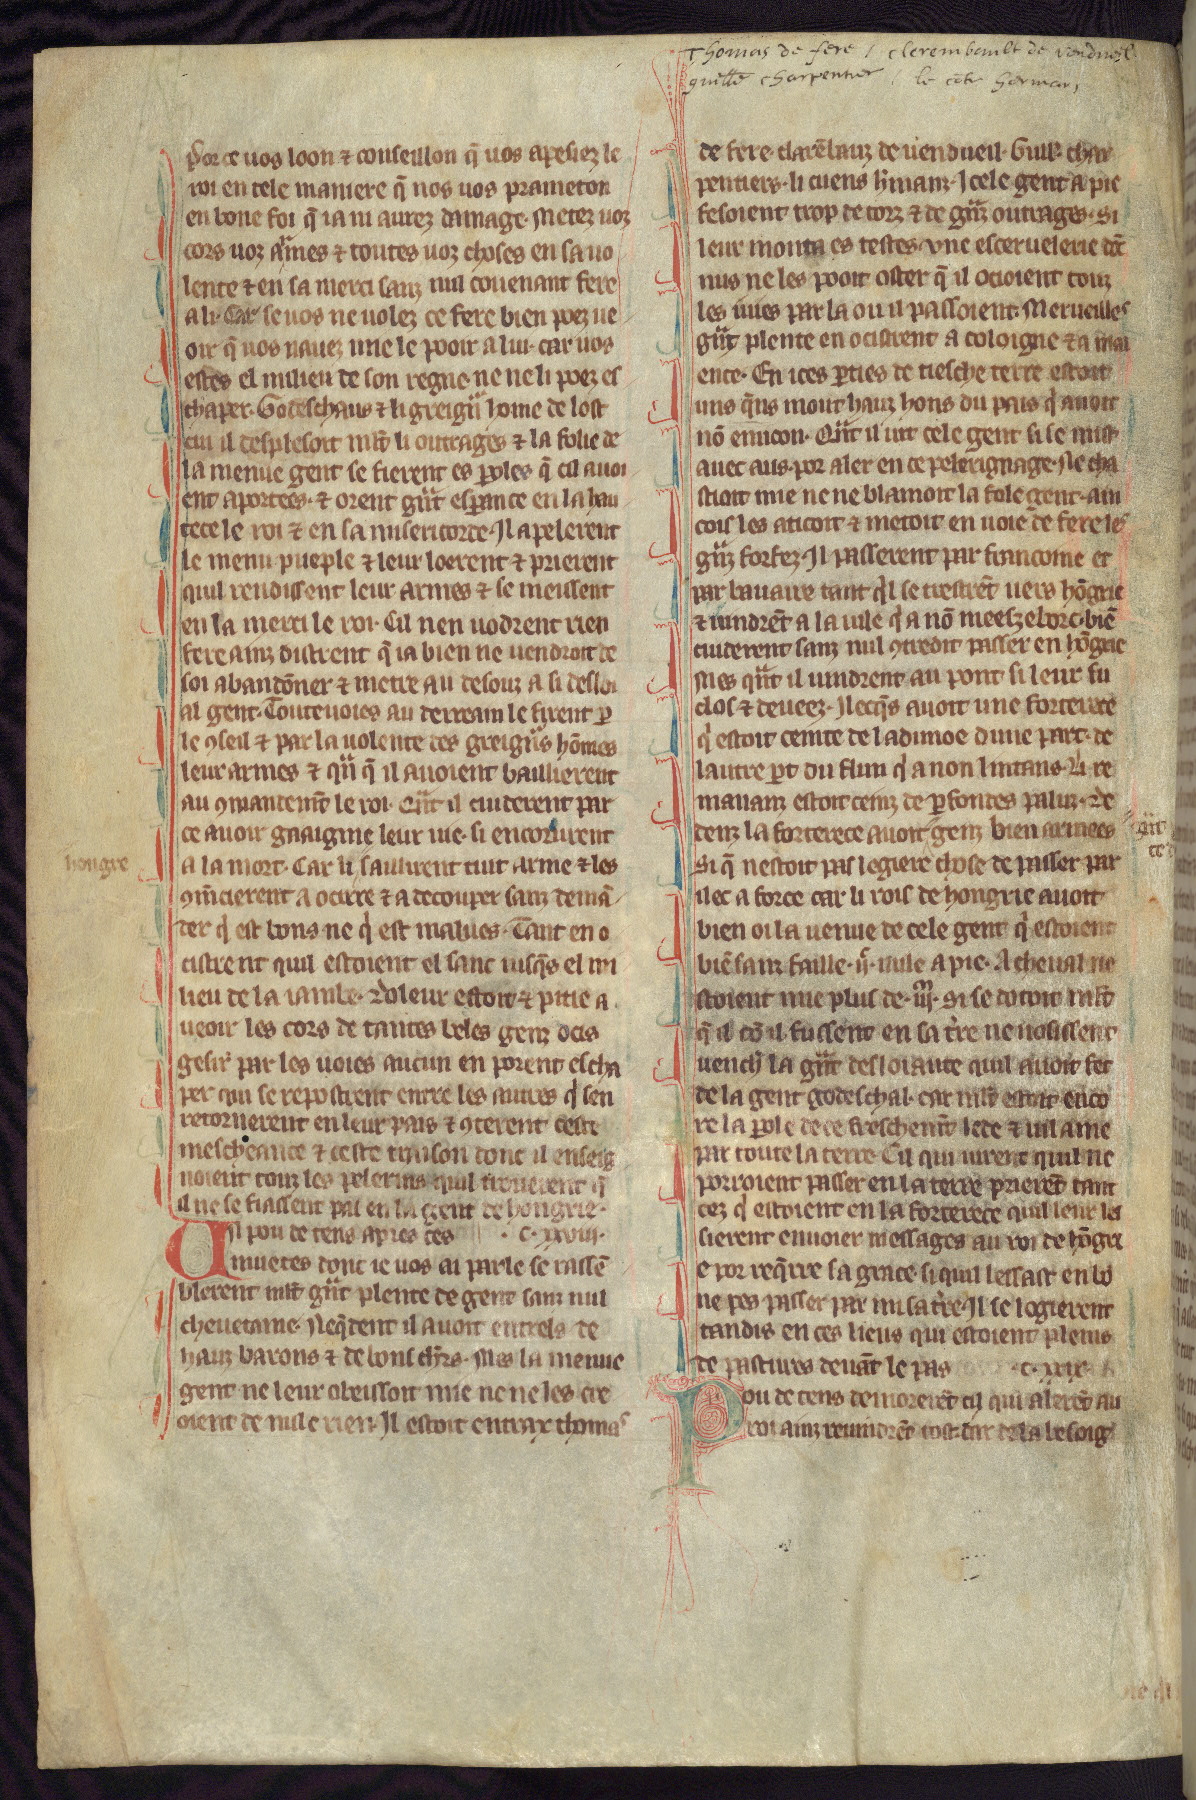 Thomas de fere / clerembault de vendueil
guille charpentier / le cte herman,
Por ce uos loon ⁊ conseillon q̃ uos apesiez le
roi en tele maniere q̃ nos uos prameton
en bone foi q̃ ia ni aurez damage. Metez uoz
cors uoz armes ⁊ toutes uoz choses en sa uo
lente ⁊ en sa merci sanz nul couenant fere
a li. Car se uos ne uolez ce fere bien poez ue
oir q̃ uos nauez mie le pooir a lui. car uos
estes el milieu de son regne. ne ne li poez es
chaper. Godeschaus ⁊ li greigñ home de lost
cui il desplesoit mlt̃ li outrages ⁊ la folie de
la menue gent se fierent es ꝑoles q̃ cil auoi
ent aportees. ⁊ orent gñt esꝑance en la hau
tece le roi ⁊ en sa misericorde. Il apelerent
le menu pueple ⁊ leur loerent ⁊ prierent
quil rendissent leur armes ⁊ se meissent
en la merci le roi. Cil nen uodrent rien
fere ainz distrent q̃ ia bien ne uendroit de
soi abandõner ⁊ metre au desouz a si desloi
al gent. Toutesuoies au derreain le firent ꝑ
le ꝯseil ⁊ par la uolente des greigñs hõmes
leur armes ⁊ qñ q̃ il auoient baillierent
au ꝯmandemt̃ le roi. Qñt il cuiderent par
ce auoir gaaignie leur uie. si encorurent
hongre
a la mort. Car li saillirent tuit arme ⁊ les
ꝯmẽcierent a ocirre ⁊ a decouper sanz demã
der q̃ est bons ne q̃ est malues. Tant en o
cistrent quil estoient el sanc iusq̃s el mi
lieu de la iambe. Doleur estoit ⁊ pitie a
ueoir les cors de tantes beles genz ocis
gesir par les uoies aucun en porent escha
per qui se repostrent entre les autres q̃ sen
retornerent en leur pais ⁊ ꝯterent ceste
mescheance ⁊ ceste traison dont il enseig
noient touz les pelerins quil trouerent q̃
il ne se fiassent pas en la gent de hongrie.
Un pou de tens apres ces .c. xxviii.
muetes dont ie uos ai parle se rassẽ
blerent mlt̃ gñt plente de gent sanz nul
cheuetaine. Neq̃dent il auoit entrels de
hauz barons ⁊ de bons chrs̃. Mes la menue
gent ne leur obeissoit mie ne ne les cre
oient de nule rien. Il estoit entrax thomas
de fere. clarẽbauz de uendueil. Guill. char
pentiers. li cuens hermanz. Icele gent a pie
fesoient trop de torz ⁊ de gñz outrages. si
leur monta es testes vne escerueleríe dõt
nus ne les pooit oster q̃ il ocioient touz
les iuis par la ou il passoient. Merueilles
gñt plente en ocistrent a coloigne ⁊ a mai
ence. En ices ꝑties de tiesche terre estoit
uns q̃ns mout hauz hons du pais q̃ auoit
nõ emicon. Qñt il uit cele gent si se mist
auec aus. por aler en ce pelerignage. Ne cha
stioit mie ne ne blamoit la fole gent. ain
cois les aticoit ⁊ metoit en uoie de fere les
gñz forfez. Il passerent par franconie et
par bauaire tant q̃l se trestrẽt uers hõgrie
⁊ uindrẽt a la uile q̃ a nõ meeszeborc. biẽ
cuiderent sanz nul ꝯtredit passer en hõgrie
Mes qñt il uindrent au pont si leur fu
clos ⁊ deueez. Ilecq̃s auoit une forterece
q̃ estoit ceinte de la dunoe dune part. de
lautre ꝑt du flun q̃ a non lintans. Li re
mananz estoit ceinz de ꝑfondes paluz. De
denz la forterece auoit genz bien armees
gñt
Si q̃ nestoit pas legiere chose de passer par
ilec a force car li rois de hongrie auoit
bien oi la uenue de cele gent q̃ estoient
biẽ sanz faille. ij. mile a pie. A cheual ne
stoient mie plus de. iijᵐ. Si se dotoit mlt̃
q̃ il cõ il fussent en sa tr̃re ne uosissent
uench̃ la gñt desloiaute quil auoit fet
de la gent godeschal. car mlt̃ estoit enco
re la ꝑole de ce freschemt̃ lede ⁊ uilaine
par toute la terre. Cil qui uirent quil ne
porroient passer en la terre prierẽt tant
cez q̃ estoient en la forterece quil leur les
sierent enuoier messages au roi de hõgri
e por req̃rre sa grace. si quil lessast en bo
ne pes passer par mi sa tr̃re. Il se logierent
tandis en ces lieus qui estoient pleins
de pastures deuãt le pas .c. xxix.
Pou de tens demorerẽt cil qui alerẽt au
roi ainz reuindrẽt tost. car de la besoig